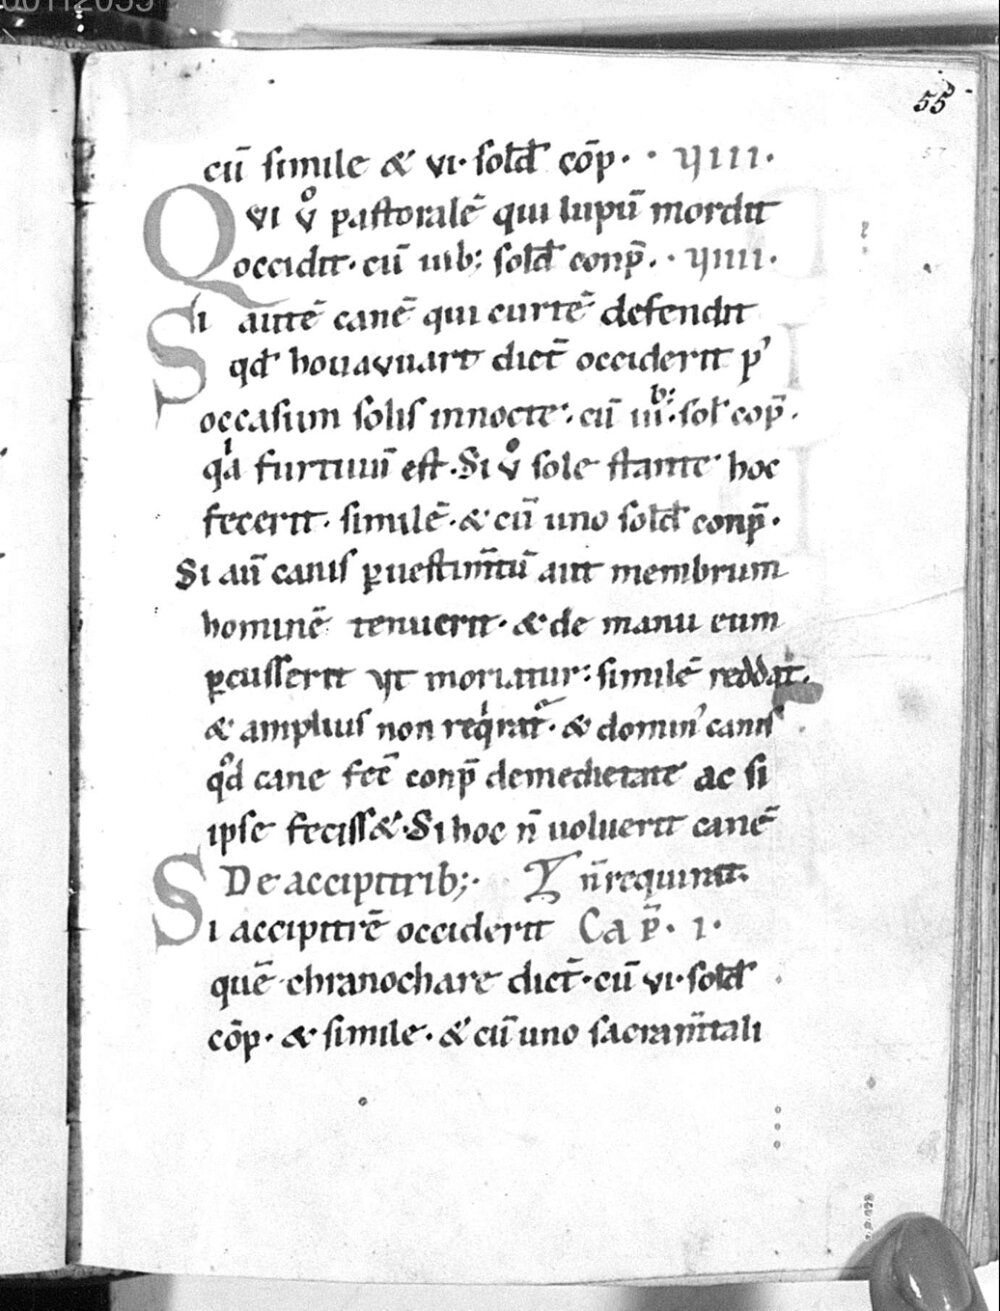 55
57
cū simile & vi· sold̄ cōp̄· · VIIII·
Qvi v̊ pastoralē qui lupū mordit
occidit· cū iiib; sold̄ conp̄· · VIIII·
Si autē canē qui curtē defendit
qd̄ houavuart dicit̄ occiderit p'
occasum solis innocte· cū iii b; sol̄ cop̄·
qia furtiuū est· Si v̊ sole stante hoc
fecerit· similē· & cū uno sold̄ conp̄·
Si aū canis p̱uestim̄tū aut membrum
hominē tenuerit· & de manu eum
p̱cusserit vt moriatur: similē reddat·
& amplius non reqirat᷑· & domin' canis
qod cane fec̄ conp̄ demedietate ac si
ipse feciss&· Si hoc n̄ uoluerit canē
De accipitrib;· n̄ requirat·
Si accipitrē occiderit Cap̄· I·
quē chranochare dict̄· cū vi· sold̄
cōp· & simile· & cū uno sacram̄tali